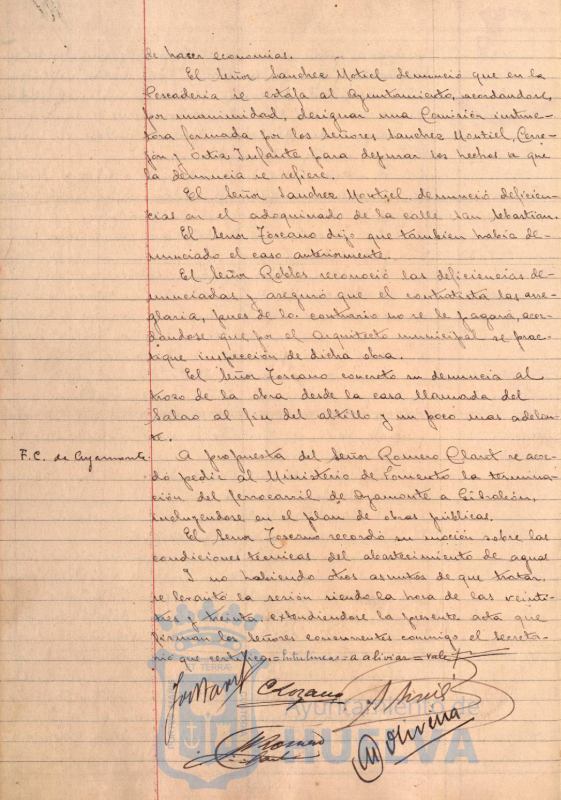 de hacer economias.
El Señor Sanchez Motiel denunció que en la
Pescaderia se estafa al Ayuntamiento, acordandose,
por unanimidad, designar una Comisión instruc-
tora formada por los Señores Sanchez Montiel, Cerre-
jón y Ortiz Infante para depurar los hechos a que
la denuncia se refiere.
El Señor Sanchez Montiel denunció deficien-
cias en el adoquinado de la calle San Sebastian.
El Señor Toscano dijo que tambien habia de-
nunciado el caso anteriormente.
El Señor Robles reconoció las deficiencias de-
nunciadas y aseguró que el contratista las arre-
glaria, pues de lo contrario no se le pagará, acor-
dandose que por el Arquitecto municipal se prac-
tique inspección de dicha obra.
El Señor Toscano concretó su denuncia al
trozo de la obra desde la casa llamada del
Salao al fin del altillo y un poco mas adelan-
te.
F.C. de Ayamonte. A propuesta del Señor Romero Claret se acor-
dó pedir al Ministerio de Fomento la termina-
ción del ferrocarril de Ayamonte a Gibraleón,
incluyendose en el plan de obras públicas.
El Señor Toscano recordó su moción sobre las
condiciones técnicas del abastecimiento de aguas
Y no habiendo otros asuntos de que tratar,
se levantó la sesión siendo la hora de las veinti-
tres y treinta extendiendose la presente acta que
firman los Señores concurrentes conmigo el Secreta-
rio que certifico.=Entrelineas=a aliviar=vale
Ayuntamiento de
HUELVA